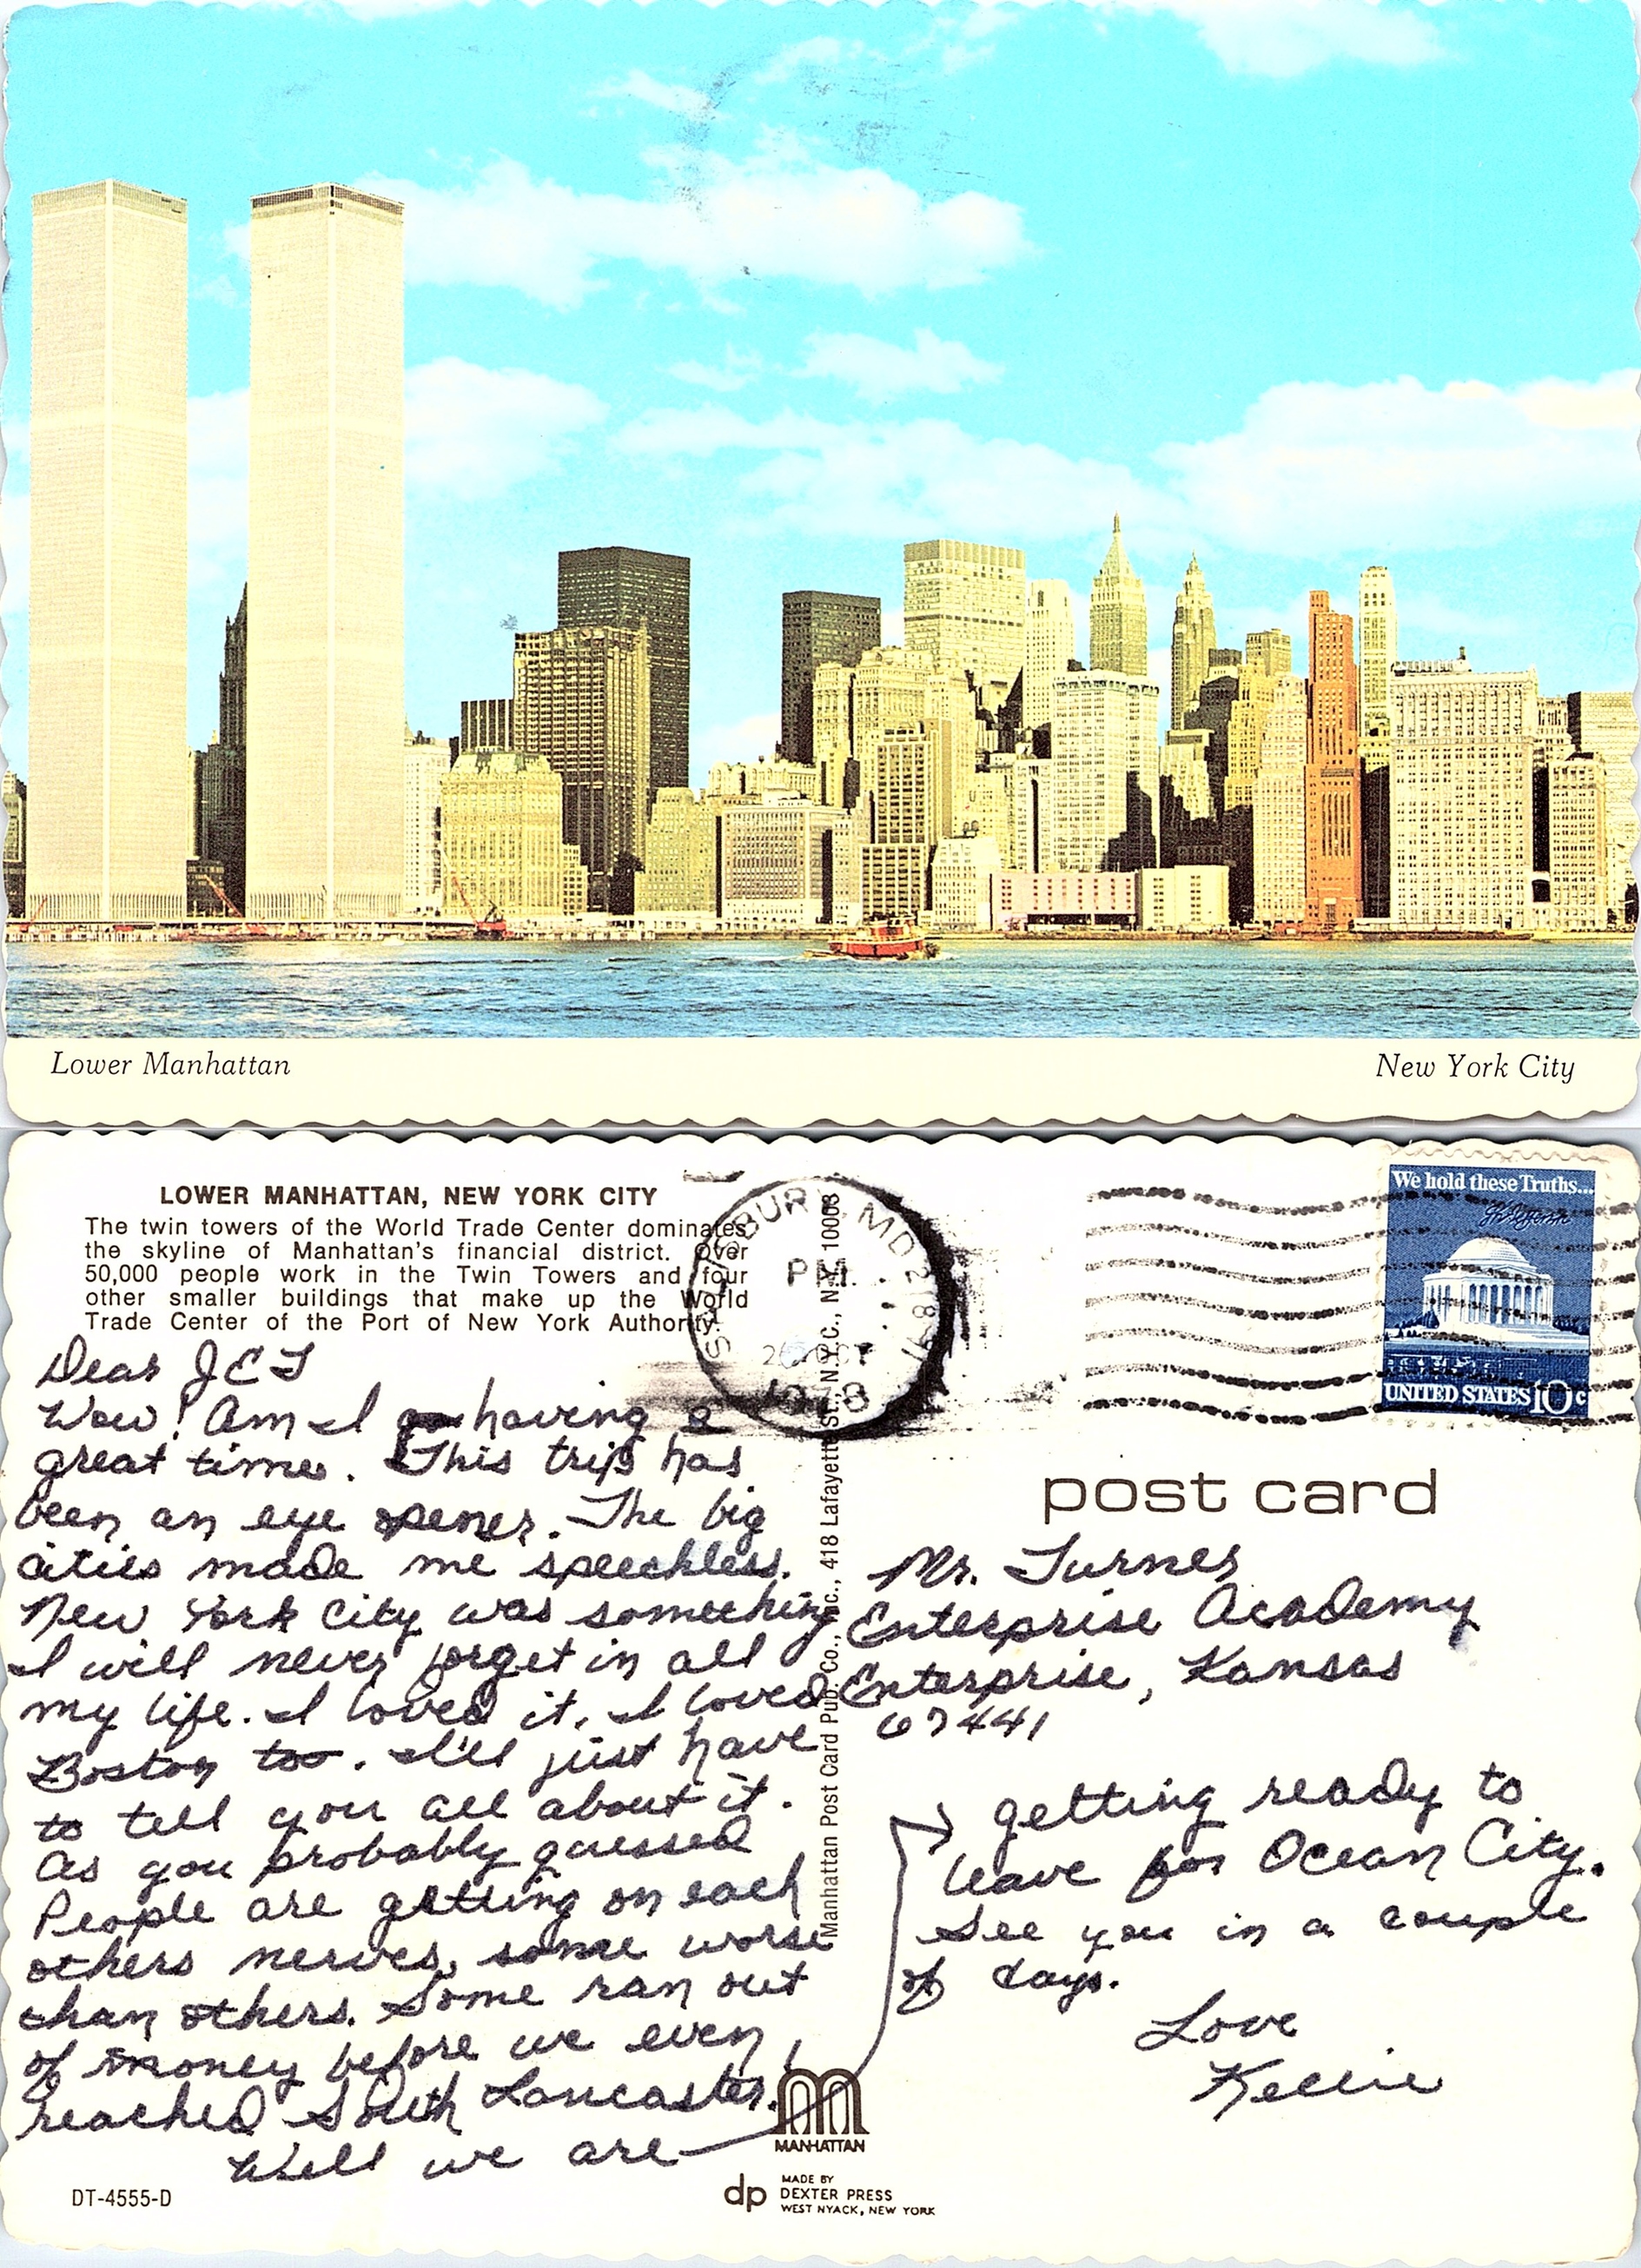 Lower Manhattan
New York City
LOWER MANHATTAN, NEW YORK CITY
The twin towers of the World Trade Center dominates
the skyline of Manhattan's financial district. Over
50,000 people work in the Twin Towers and four
other smaller buildings that make up the World
Trade Center of the Port of New York Authority.
Dear J E T
Wow! Am I having a
great time. This trip has
been an eye opener. The big
cities made me speechless.
New York City was something
I will never forget in all
my life. I loved it. I loved
Boston too. I'll just have
to tell you all about it.
As you probably guessed
People are getting on each
others nerves, some worse
than others. Some ran out
of money before we even
reached South Lancaster.
Well we are
getting ready to
leave for Ocean City.
See you in a couple
of days.
Love
Kellie
DT-4555-D
Manhattan Post Card Pub. Co., Inc., 418 Lafayette St., N.Y.C., N.Y. 10003
MANHATTAN
dp
MADE BY
DEXTER PRESS
WEST NYACK, NEW YORK
SALISBURY, MD 218
PM
26 OCT
1978
We hold these Truths...
UNITED STATES 10c
post card
Mr. Turner
Enterprise Academy
Enterprise, Kansas
67441